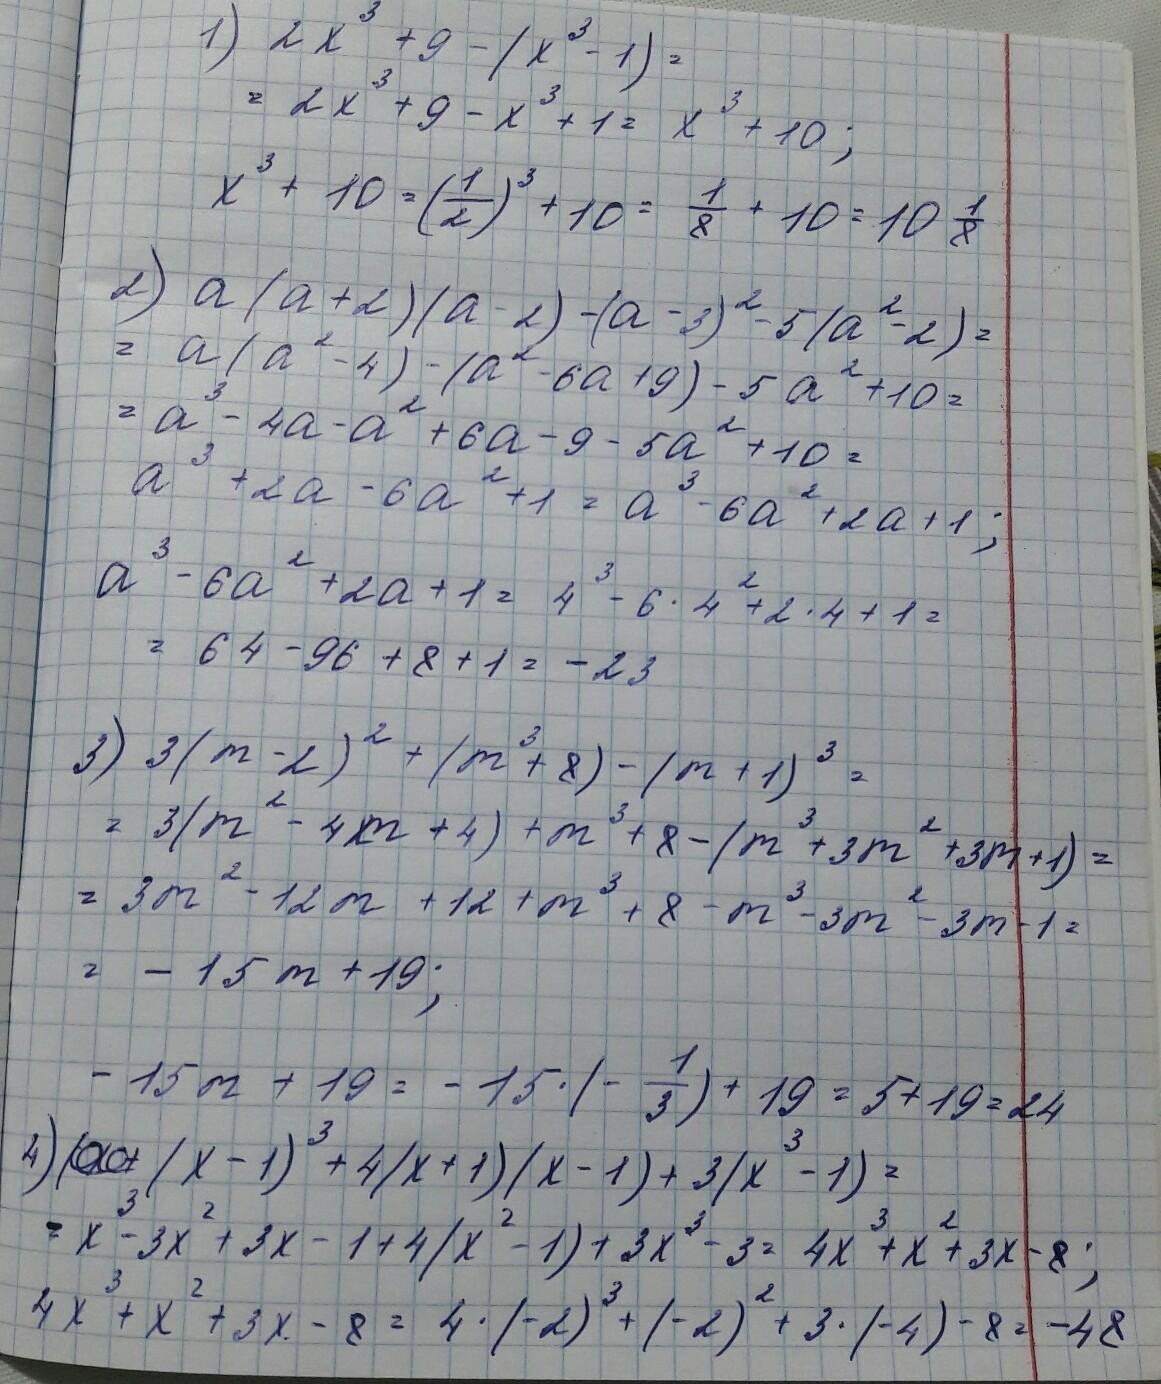 1) 2x³ + 9 - (x³ - 1) =
= 2x³ + 9 - x³ + 1 = x³ + 10;
x³ + 10 = (1/2)³ + 10 = 1/8 + 10 = 10 1/8
2) a(a+2)(a-2) - (a-3)² - 5(a²-2) =
= a(a²-4) - (a²-6a+9) - 5a² + 10 =
= a³ - 4a - a² + 6a - 9 - 5a² + 10 =
a³ + 2a - 6a² + 1 = a³ - 6a² + 2a + 1;
a³ - 6a² + 2a + 1 = 4³ - 6·4² + 2·4 + 1 =
= 64 - 96 + 8 + 1 = -23
3) 3(m-2)² + (m³+8) - (m+1)³ =
= 3(m² - 4m + 4) + m³ + 8 - (m³ + 3m² + 3m + 1) =
= 3m² - 12m + 12 + m³ + 8 - m³ - 3m² - 3m - 1 =
= - 15m + 19;
- 15m + 19 = - 15·(- 1/3) + 19 = 5 + 19 = 24
4) (x-1)³ + 4(x+1)(x-1) + 3(x³-1) =
= x³ - 3x² + 3x - 1 + 4(x²-1) + 3x³ - 3 = 4x³ + x² + 3x - 8;
4x³ + x² + 3x - 8 = 4·(-2)³ + (-2)² + 3·(-4) - 8 = -48